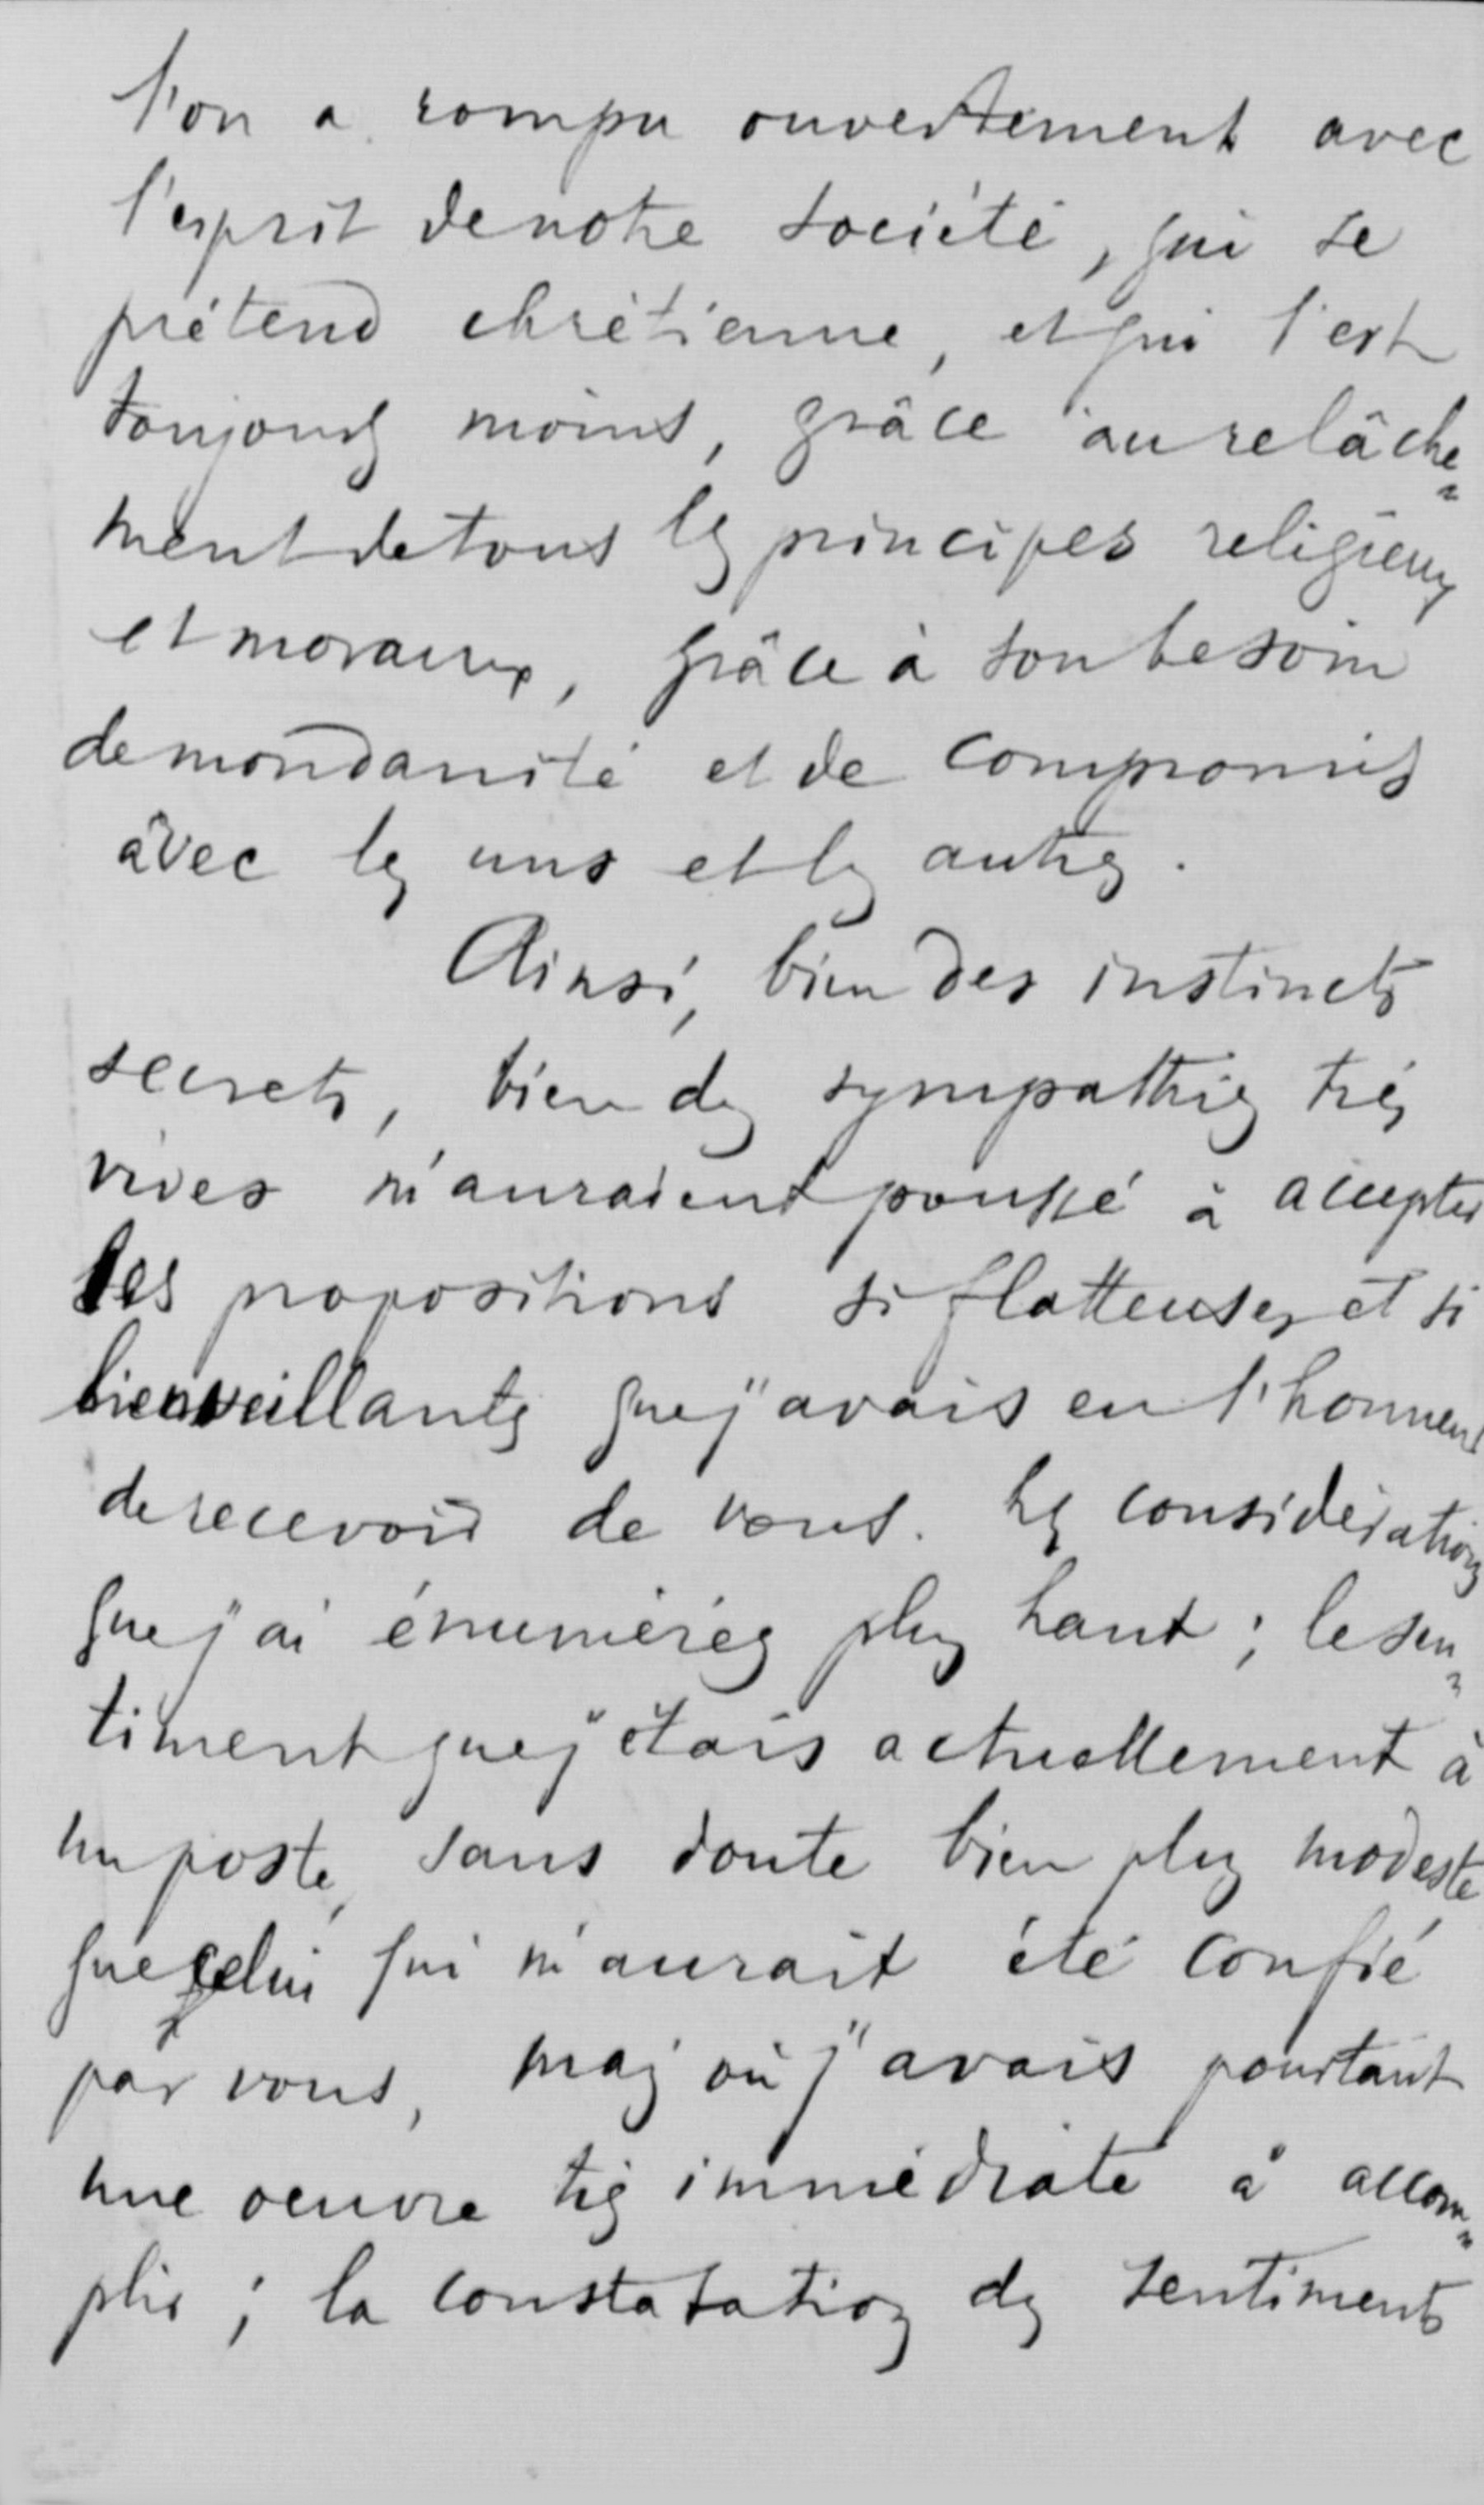 l'on a rompu ouvertement avec
l'esprit de notre société, qui se
prétend chrétienne, et qui l'est
toujours moins, grâce au relâche=
ment de tous les principes religieux
et moraux, grâce à son besoin
de mondanité et de compromis
avec les uns et les autres.
Ainsi, bien des instincts
secrets, bien des sympathies très
vives m'auraient poussé à accepter
les propositions si flatteuses et si
bienveillantes que j'avais eu l'honneur
de recevoir de vous. Les considérations
que j'ai énumérées plus haut; le sen=
timent que j'étais actuellement à
un poste, sans doute bien plus modeste
que celui qui m'aurait été confié
par vous, mais où j'avais pourtant
une oeuvre très immédiate à accom=
plir; la constatation des sentiments